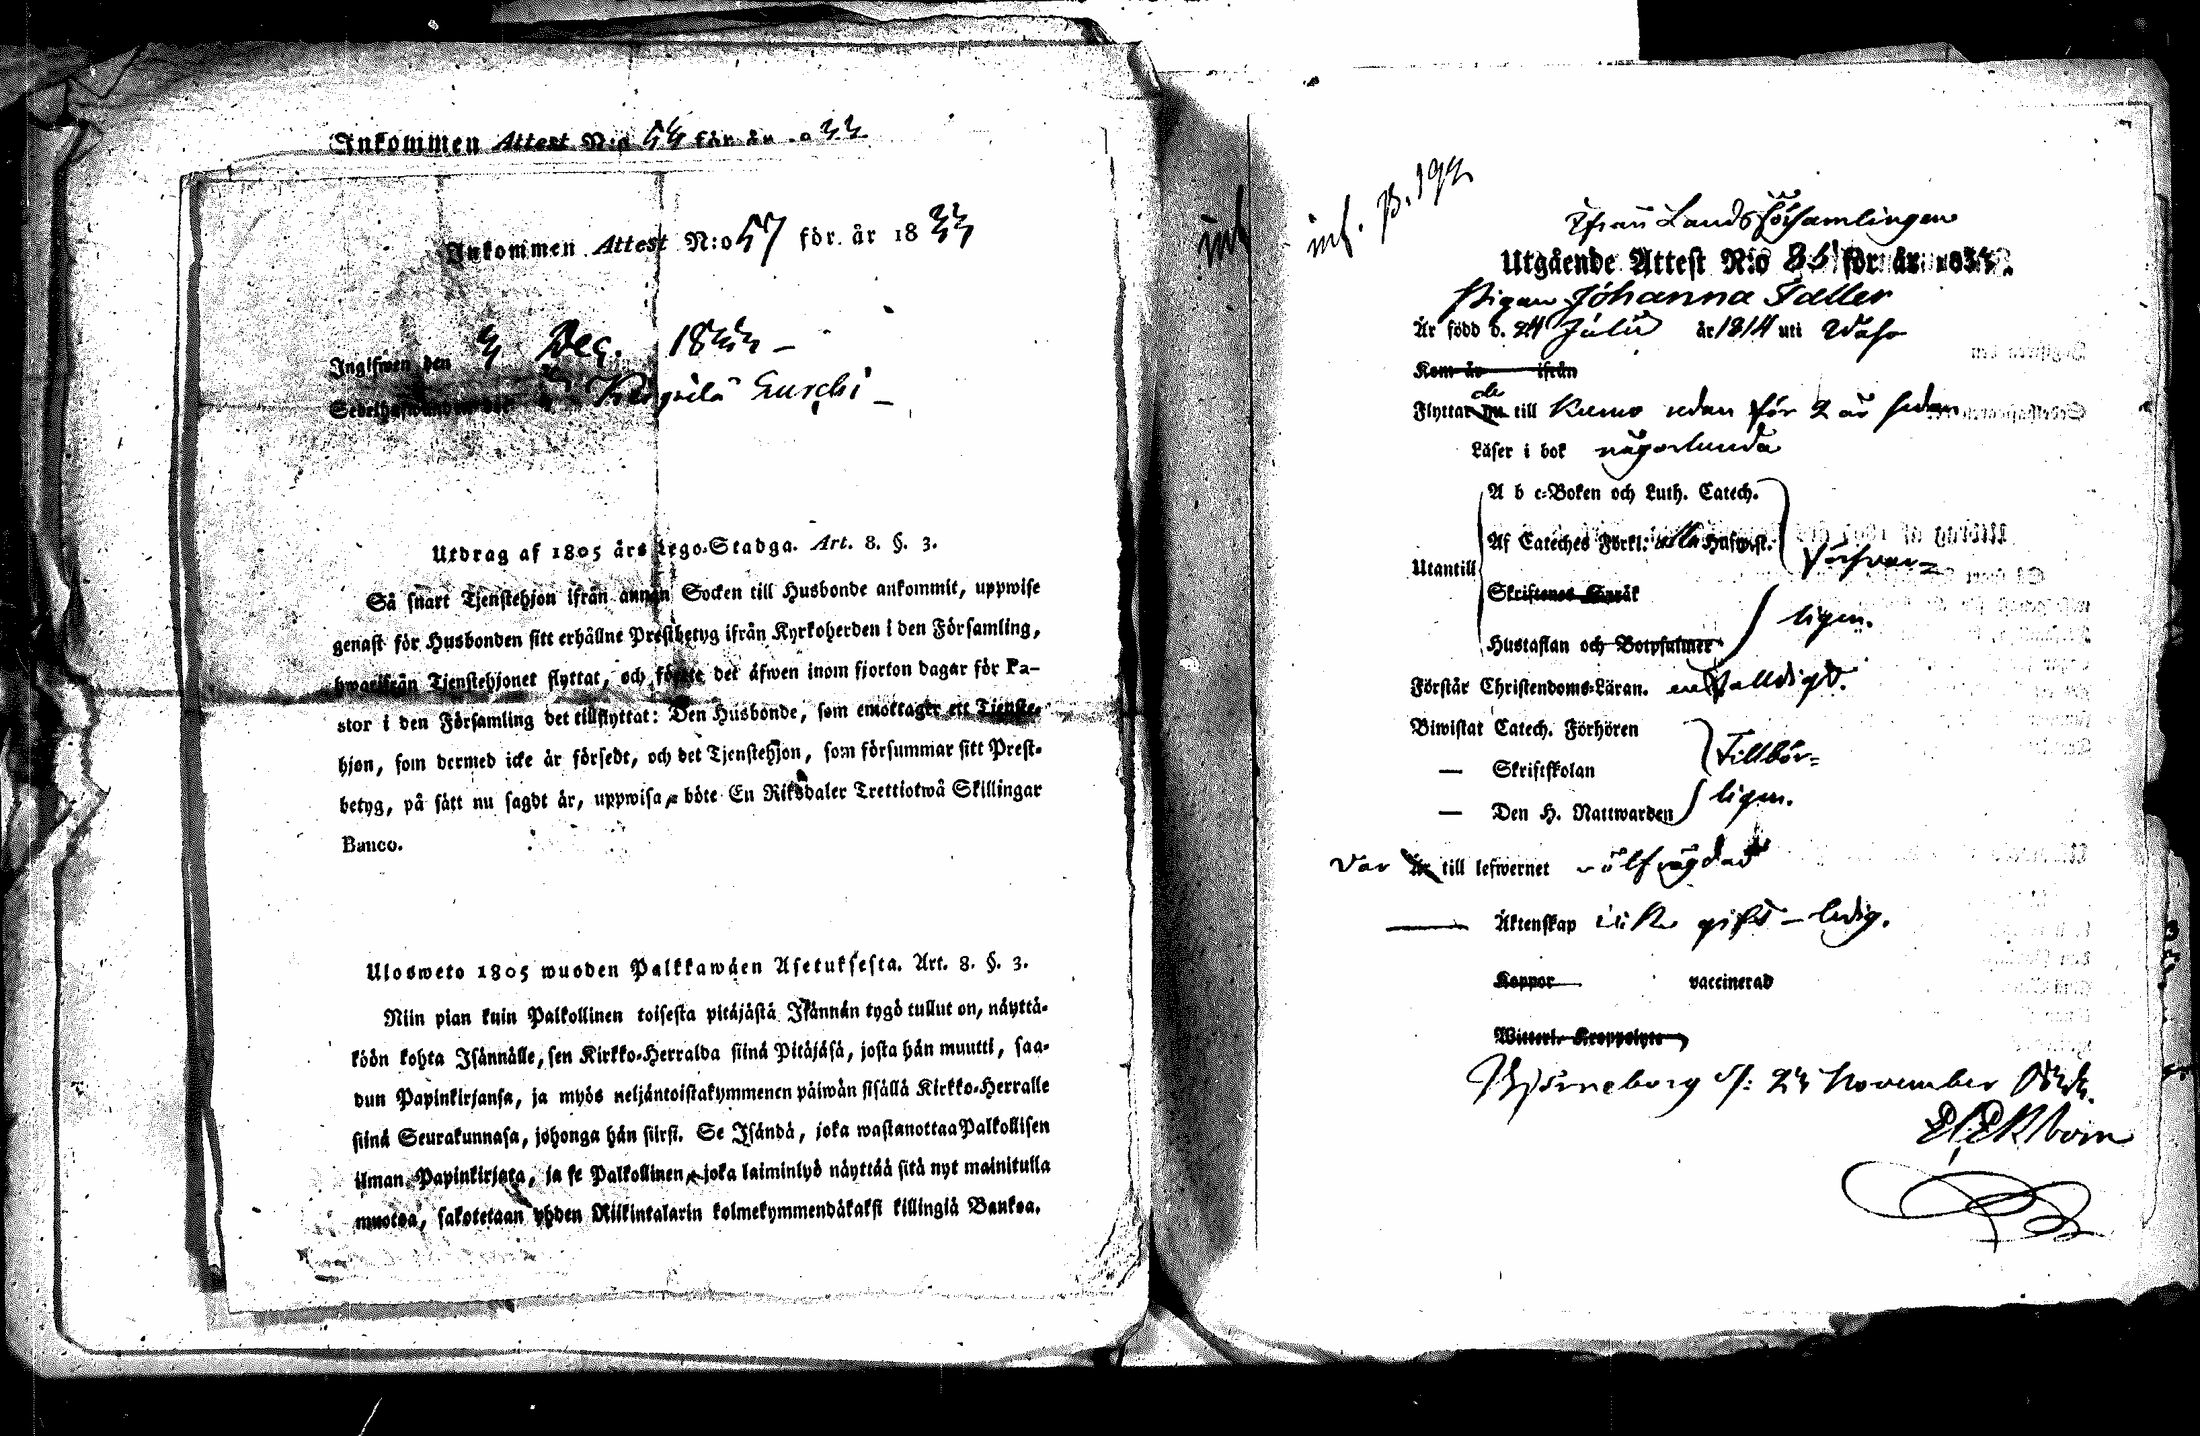 Inkommen Attest N:o 54 för år
Inkommen Attest N:o 57 för år 18 33
Ingifwen den 4 Dec. 1833 –
Sedelhafwanden
Utdrag af 1805 års Lego-Stadga. Art. 8. §. 3.
Så snart Tjenstehjon ifrån annan Socken till Husbonde ankommit, uppwise
genast för Husbonden sitt erhållne Prestbetyg ifrån Kyrkoherden i den Församling,
hwarifrån Tjenstehjonet flyttat, och förete det äfwen inom fjorton dagar för Pa-
stor i den Församling det tillflyttat: Den Husbonde, som emottager ett Tjenste-
hjon, som dermed icke är försedt, och det Tjenstehjon, som försummar sitt Prest-
betyg, på sätt nu sagdt är, uppwisa, böte En Riksdaler Trettiotwå Skillingar
Banco.
Ulosweto 1805 wuoden Palkkawäen Asetuksesta. Art. 8. §. 3.
Niin pian kuin Palkollinen toisesta pitäjästä Isännän tygö tullut on, näyttä-
köön kohta Isännälle, sen Kirkko-Herralda siinä Pitäjäsä, josta hän muutti, saa-
dun Papinkirjansa, ja myös neljäntoistakymmenen päiwän sisällä Kirkko-Herralle
siinä Seurakunnasa, johonga hän siirsi. Se Isändä, joka wastanottaa Palkollisen
ilman Papinkirjata, ja se Palkollinen, joka laiminlyö näyttää sitä nyt mainitulla
muotoa, sakotetaan yhden Riikintalarin kolmekymmendäkaksi killingiä Bankoa.
inf. p. 192
Ifrån Landsförsamlingen
Utgående Attest N:o 85 för år 1833.
Pigan Johanna Taller
Är född d. 24 Julii år 1814 uti
Kom år ifrån
Flyttar nu till Kumo redan för 2 år sedan
Läser i bok någorlunda
A b c-Boken och Luth. Catech.
Af Cateches Förkl: alla Hufwst. försvar=
Utantill
Skriftenes Språk
Hustaflan och Botpsalmer ligen.
Förstår Christendoms-Läran. enfalldigt.
Biwistat Catech. Förhören
— Skriftskolan Tillbör=
— Den H. Nattwarden ligen.
Var Är till lefwernet välfrägdad
— Äktenskap icke gift – ledig.
Koppor vaccinerad
Witterl. Kroppslyte
Björneborg d: 23 November 1833.
Ekbom